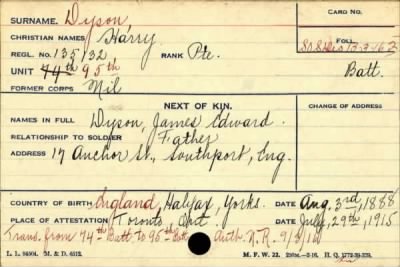 SURNAME. Dyson, CARD NO.
CHRISTIAN NAMES Harry FOLL
REGL. NO. 135132 RANK Pte.
UNIT 74th 95th Batt.
FORMER CORPS Nil
NEXT OF KIN. CHANGE OF ADDRESS
NAMES IN FULL Dyson, James Edward.
RELATIONSHIP TO SOLDIER Father
ADDRESS 17 Anchor St., Southport, Eng.
COUNTRY OF BIRTH England, Halifax, Yorks. DATE Aug. 3rd, 1888
PLACE OF ATTESTATION Toronto, Ont. DATE July 29th, 1915
Trans. from 74th Batt to 95th Batt Auth. N.R. 9/3/16
L. L. 94504. M. & D. 6512. M. F. W. 22. H. Q. 1772-39-339.